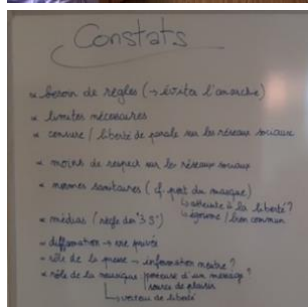 Constats
× besoin de règles (→ éviter l'anarchie)
× limites nécessaires
× censure / liberté de parole sur les réseaux sociaux
× moins de respect sur les réseaux sociaux
× normes sanitaires (cf. port du masque)
↳ atteinte à la liberté ?
↳ égoïsme / bien commun
× médias (règle des "3 S")
× diffamation → vie privée
× rôle de la presse → information neutre ?
× rôle de la musique porteuse d'un message ?
source de plaisir
↳ vecteur de liberté